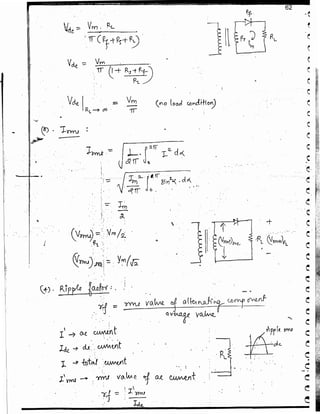 62
Vdc = Vm . RL / π (Rf + Rr + RL)
Rf
Rr
RL
Vdc = Vm / π (1 + Rr + Rf / RL)
Vdc | RL → ∞ = Vm / π (no load condition)
(3). Irms :
Irms = √ 1/2π ∫₀^2π I² dα
= √ Im²/2π ∫₀^π sin²α . dα
= Im / 2
(Vrms)RL = Vm/2
(Vrms)sec = Vm/√2
(Vrms)sec
RL (Vrms)RL
+
-
(4). Ripple factor :
γf = rms value of alternating component / average value
I' → ac current
Idc → dc current
I → total current
I'rms → rms value of ac current
RL
ripple rms
dc
γf = I'rms / Idc